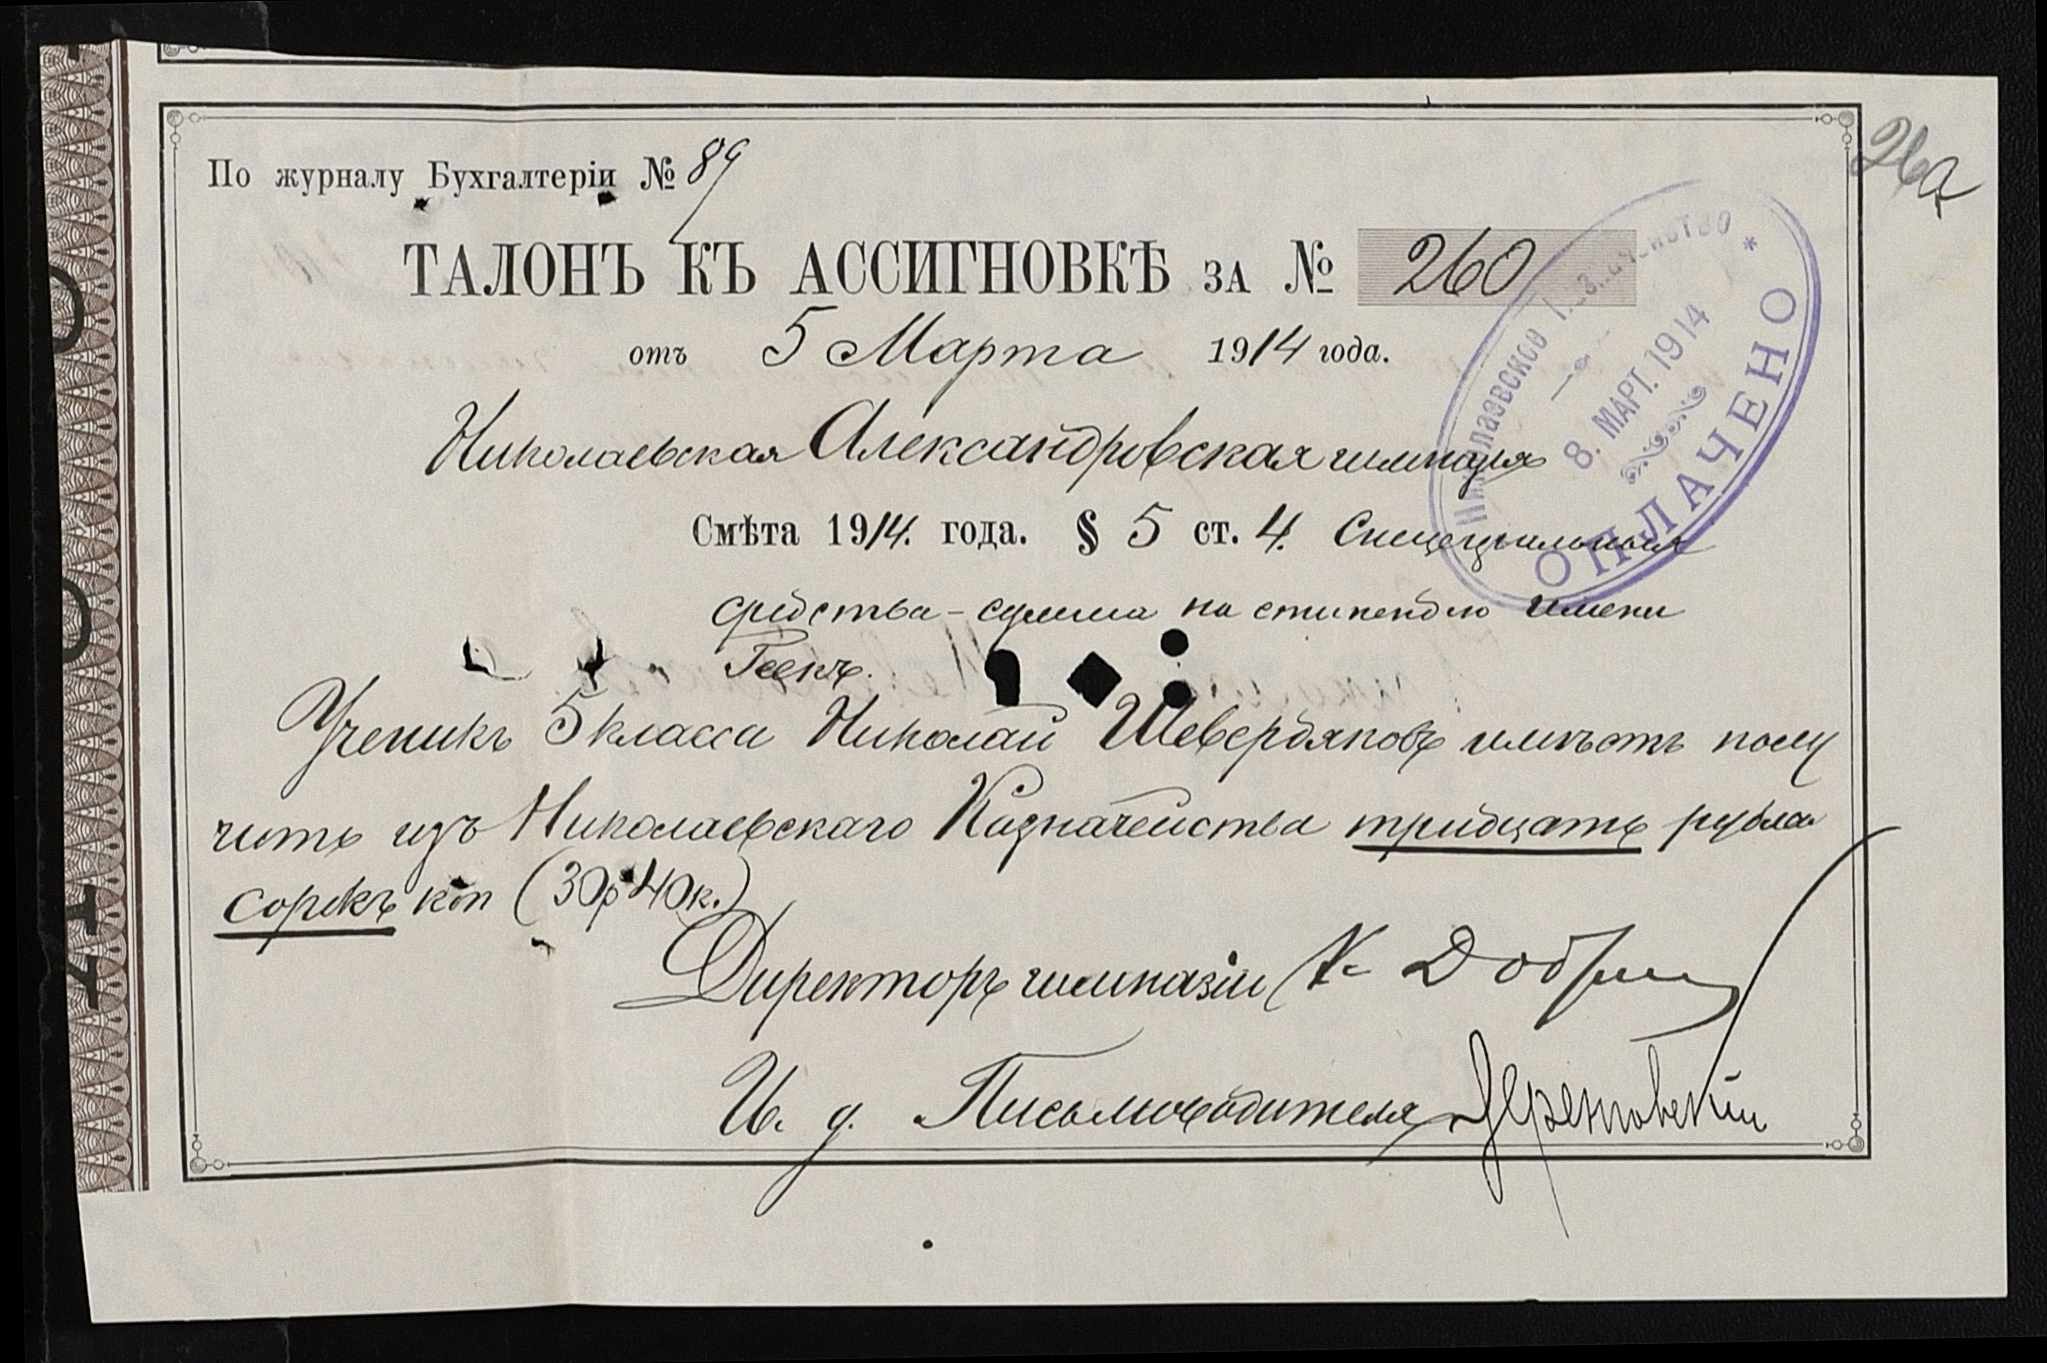 26а
По журналу Бухгалтеріи № 89
ТАЛОНЪ КЪ АССИГНОВКѢ ЗА № 260
отъ 5 Марта 1914 года.
Николаевская Александровская гимназія
Смѣта 1914. года. § 5 ст. 4. Спеціальныя
средства - сумма на стипендію имени
Геекъ.
Ученикъ 5 класса Николай Шевердяковъ имѣетъ полу
чить изъ Николаевскаго Казначейства тридцать рубл
сорокъ коп (30р 40к.)
Директоръ гимназіи
И. д. Письмоводителя
Николаевское Казначейство
8. МАРТ. 1914
* ОПЛАЧЕНО